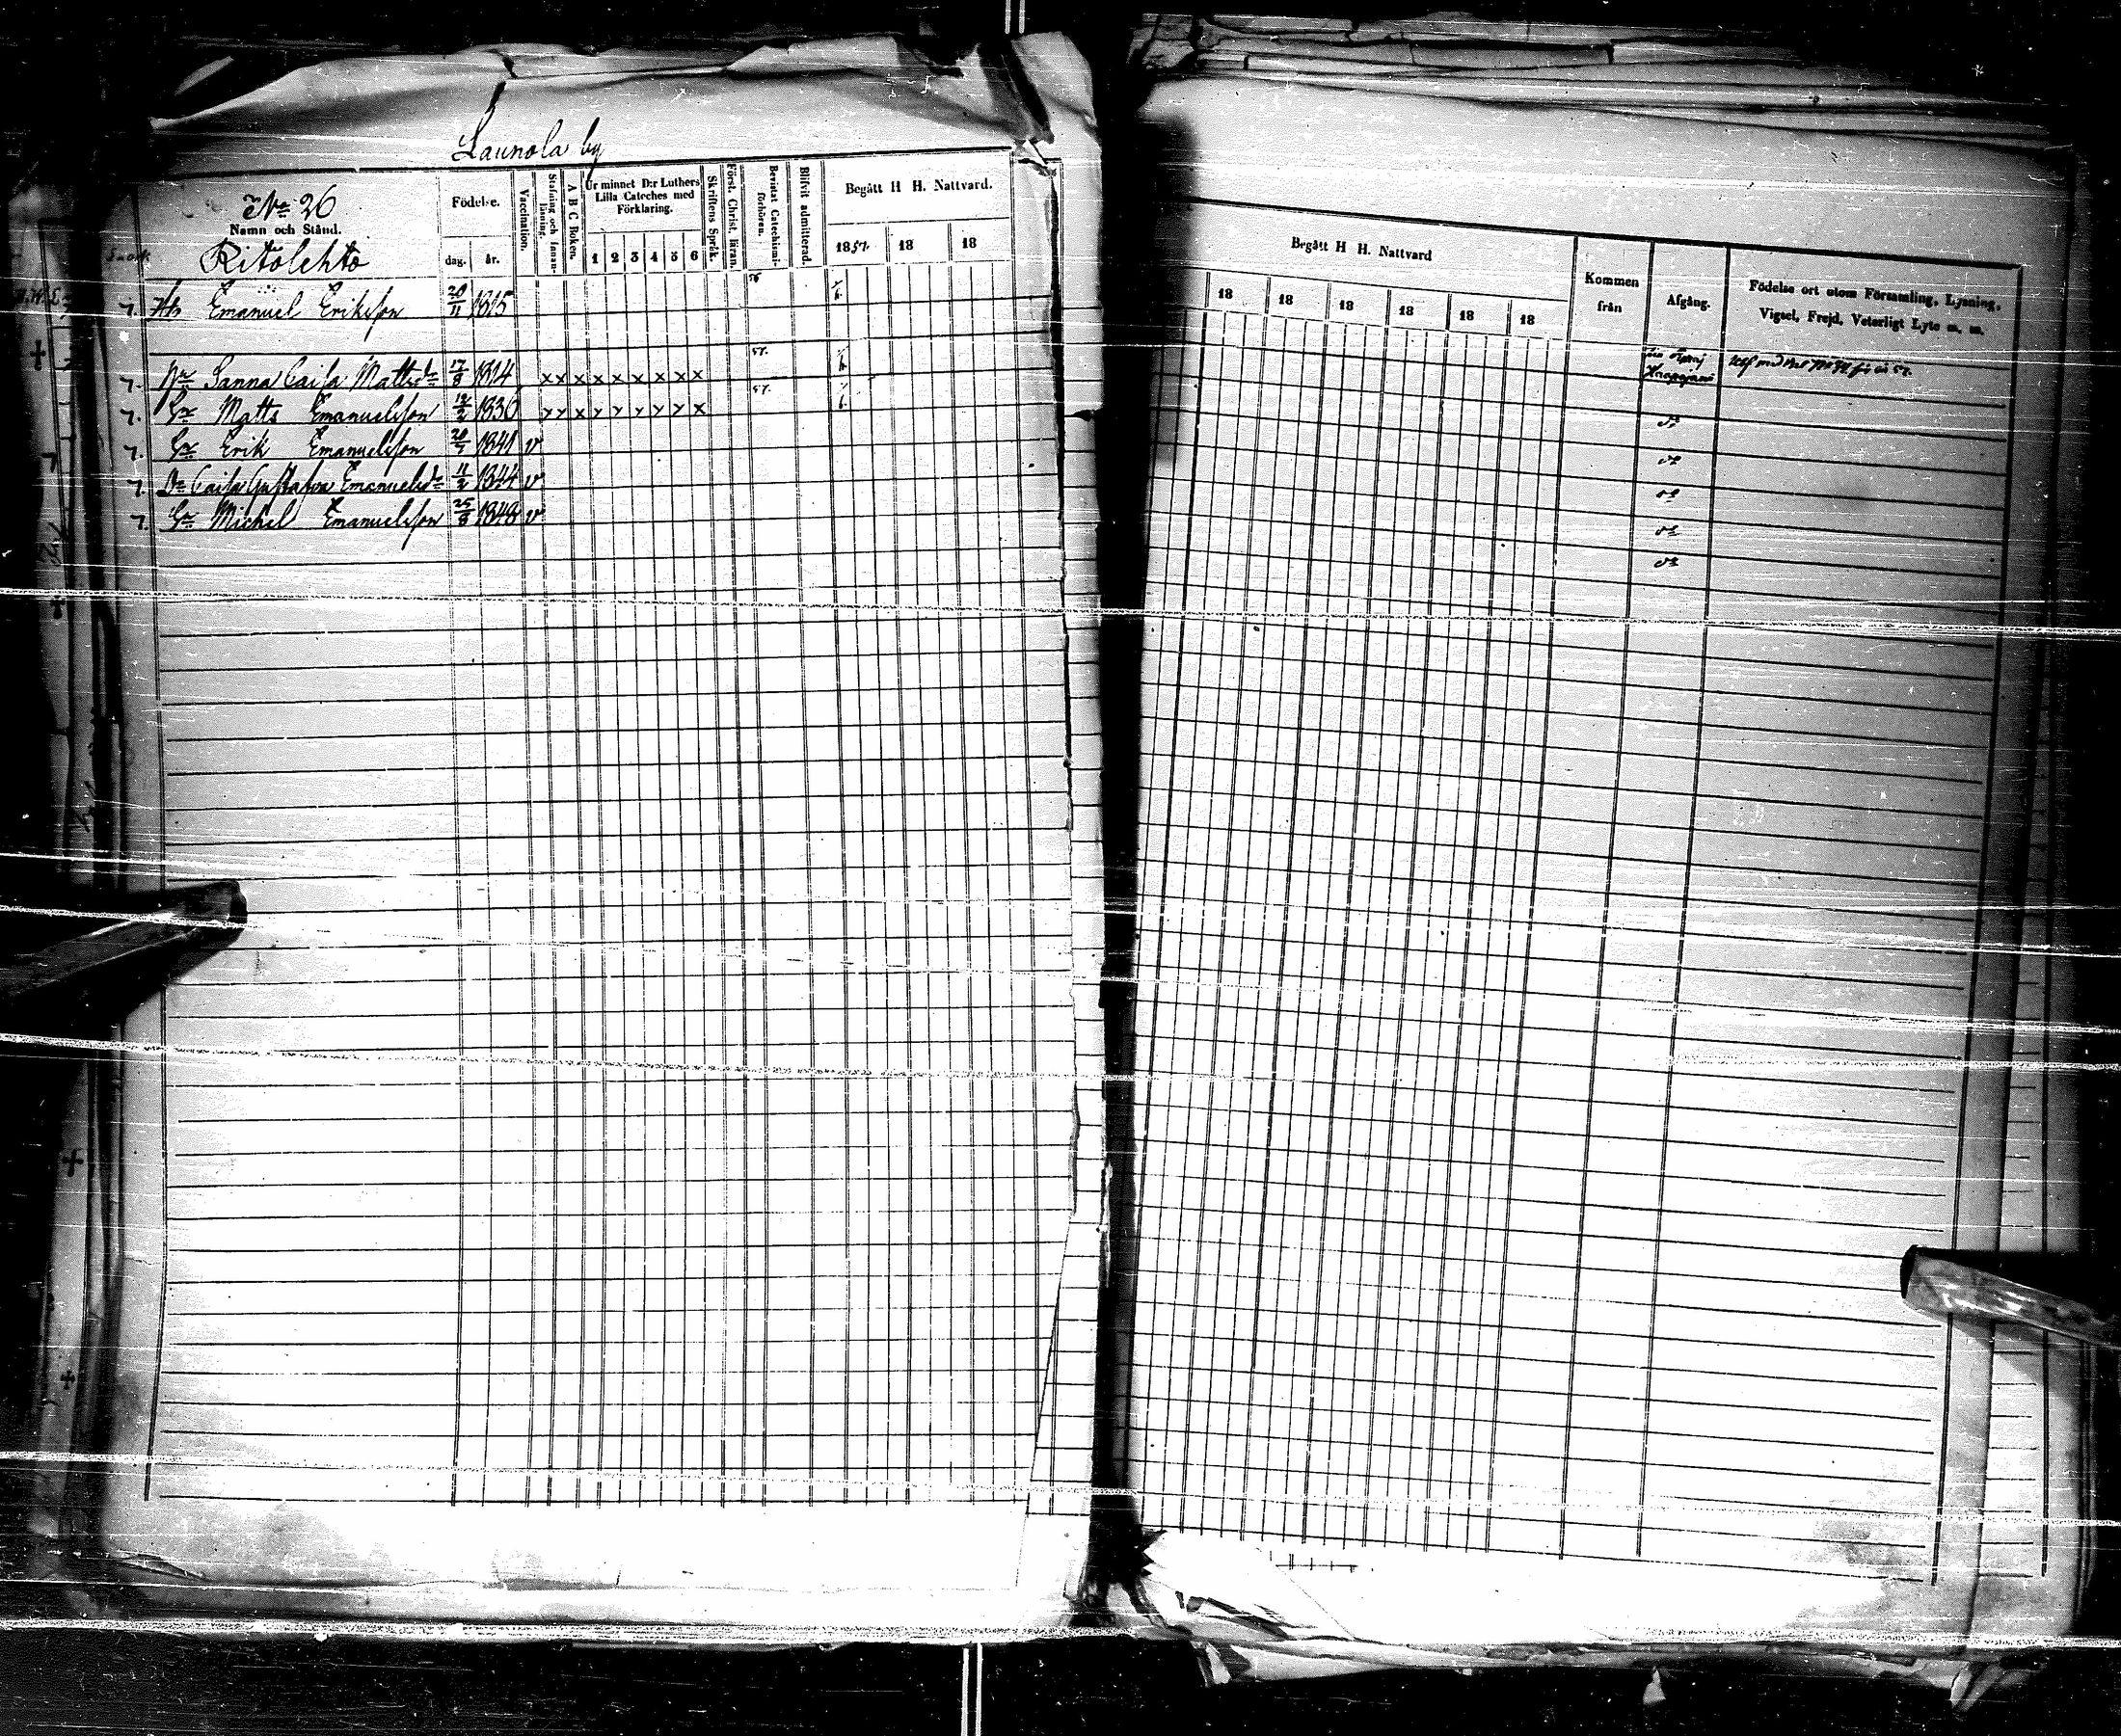 Launola by
No 26
Namn och Stånd.
Ritolehto
Födelse.
dag. år.
Vaccination.
Stafning och Innanläsning.
A B C Boken.
Ur minnet D:r Luthers Lilla Cateches med Förklaring.
1 2 3 4 5 6
Skriftens Språk.
Först. Christ. läran.
Bevistat Catechismiförhören.
Blifvit admitterad.
Begått H H. Nattvard.
1857. 18 18
7. Hb Emanuel Eriksson 20/11 1815 56
7. Hu Sanna Caisa Mattsdr 17/8 1814 x x x x x x x x x 57.
7. Sn Matts Emanuelsson 12/2 1836 x x x x x x x x x 57.
7. Sn Erik Emanuelsson 20/7 1841 v
7. Dr Caisa Gustafva Emanuelsdr 11/2 1844 v
7. Sn Michel Emanuelsson 25/8 1848 v
Begått H H. Nattvard
18 18 18 18 18 18
Kommen från
Afgång.
Födelse ort utom Församling, Lysning, Vigsel, Frejd, Veterligt Lyte m. m.
Haapajärvi
do
do
do
do
do